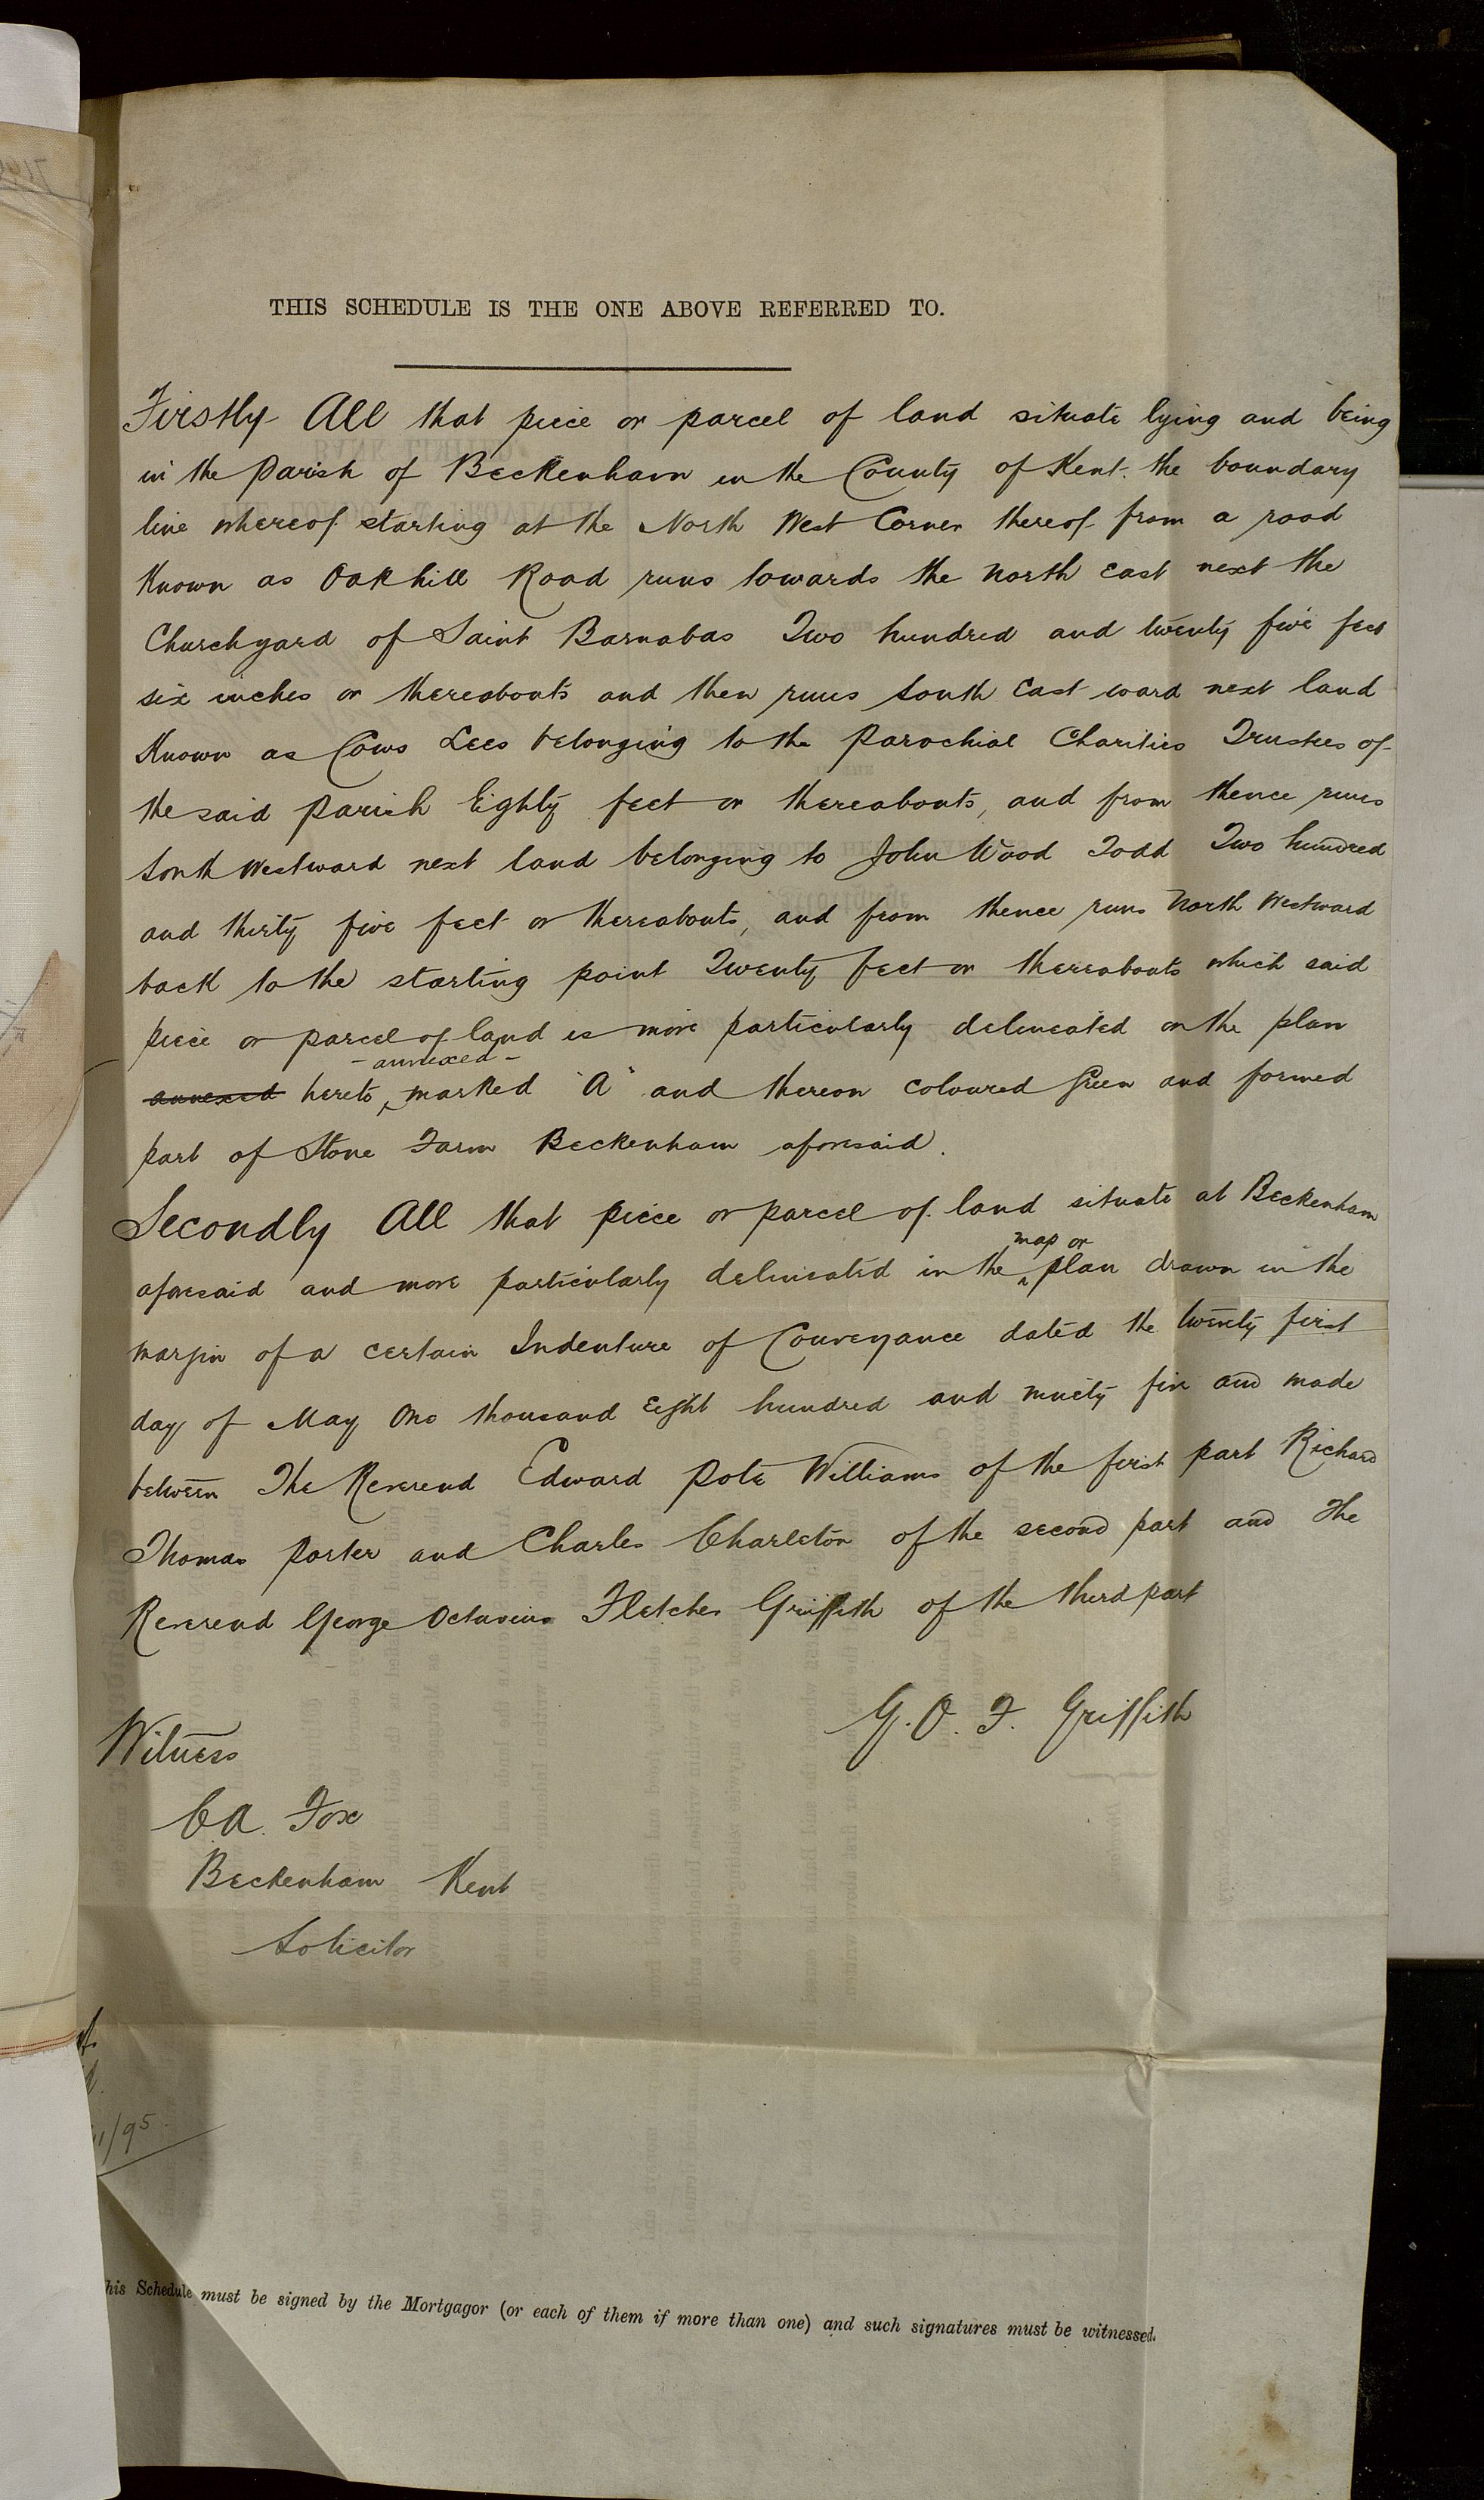 THIS SCHEDULE IS THE ONE ABOVE REFERRED TO.
Firstly All that piece or parcel of land situate lying and being
in the Parish of Beckenham in the County of Kent the boundary
line whereof starting at the North West Corner thereof from a road
Known as Oakhill Road runs towards the North East next the
Churchyard of Saint Barnabas Two hundred and twenty five feet
six inches or thereabouts and then runs South East ward next land
Known as Cows Lees belonging to the Parochial Charities Trustees of
the said Parish Eighty feet or thereabouts, and from thence runs
South Westward next land belonging to John Wood Todd Two hundred
and thirty five feet or thereabouts, and from thence runs North Westward
back to the starting point Twenty feet or thereabouts which said
piece or parcel of land is more particularly delineated on the plan
- annexed -
annexed hereto, marked "A" and thereon coloured Green and formed
part of Stone Farm Beckenham aforesaid.
Secondly All that piece or parcel of land situate at Beckenham
map or
aforesaid and more particularly delineated in the plan drawn in the
margin of a certain Indenture of Conveyance dated the twenty first
day of May One thousand Eight hundred and ninety five and made
between The Reverend Edward Pote Williams of the first part Richard
Thomas Porter and Charles Charleton of the second part and The
Reverend George Octavius Fletcher Griffith of the third part
G. O. F. Griffith
Witness
C A. Fox
Beckenham Kent
Solicitor
/95
his Schedule must be signed by the Mortgagor (or each of them if more than one) and such signatures must be witnessed.